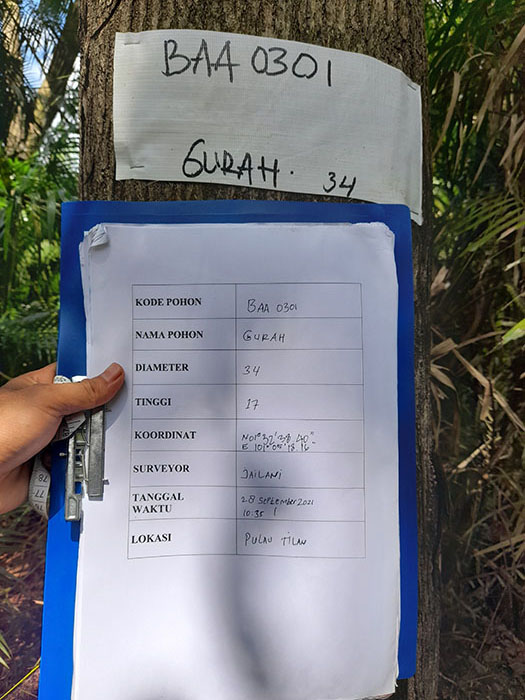 BAA 0301
GURAH.
34
KODE POHON BAA 0301
NAMA POHON GURAH
DIAMETER 34
TINGGI 17
KOORDINAT N01° 32' 38 40"
E 101° 05' 18 16"
SURVEYOR JAILANI
TANGGAL 28 SEPTEMBER 2021
WAKTU 10:35
LOKASI PULAU TILAN
77
78